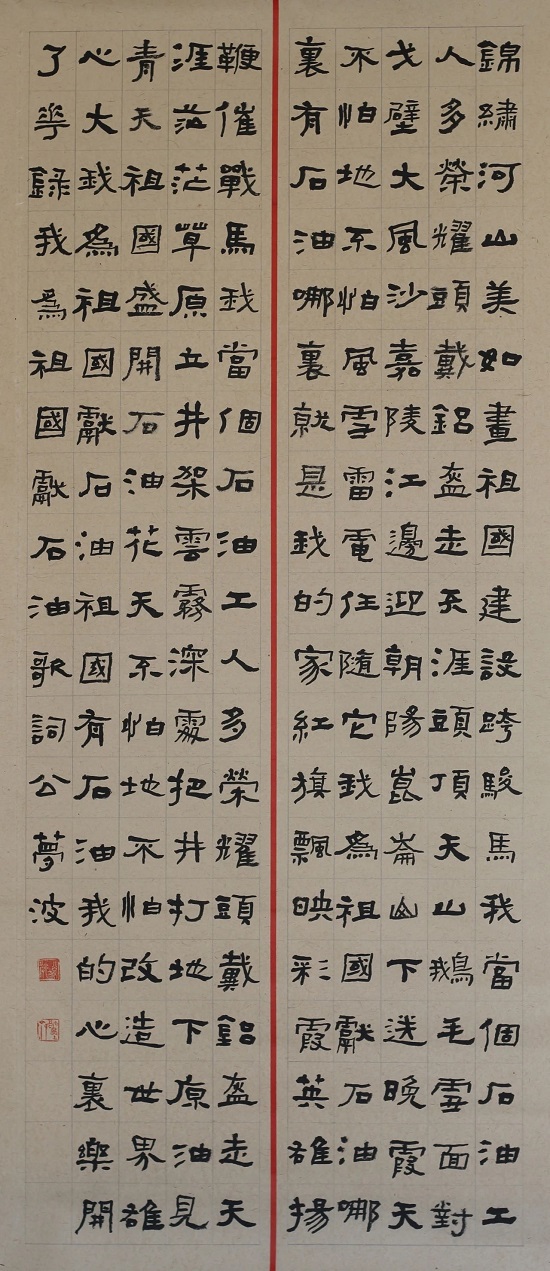 錦繡河山美如畫祖國建設跨駿馬我當個石油工
人多榮耀頭戴鋁盔走天涯頭頂天山鵝毛雪面對
戈壁大風沙嘉陵江邊迎朝陽崑崙山下送晚霞天
不怕地不怕風雪雷電任隨它我為祖國獻石油哪
裏有石油哪裏就是我的家紅旗飄映彩霞英雄揚
鞭催戰馬我當個石油工人多榮耀頭戴鋁盔走天
涯茫茫草原立井架雲霧深處把井打地下原油見
青天祖國盛開石油花天不怕地不怕改造世界雄
心大我為祖國獻石油祖國有石油我的心裏樂開
了華錄我為祖國獻石油歌詞公夢波